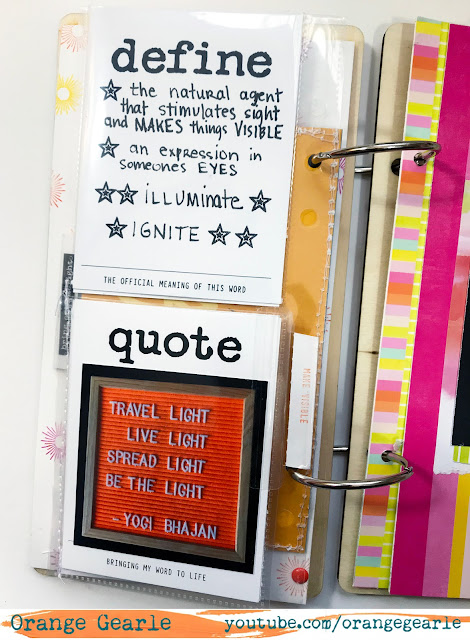 define
the natural agent
that stimulates sight
and MAKES things VISIBLE
an expression in
someones EYES
illuminate
IGNITE
THE OFFICIAL MEANING OF THIS WORD
quote
TRAVEL LIGHT
LIVE LIGHT
SPREAD LIGHT
BE THE LIGHT
- YOGI BHAJAN
BRINGING MY WORD TO LIFE
MAKE VISIBLE
Orange Gearle youtube.com/orangegearle